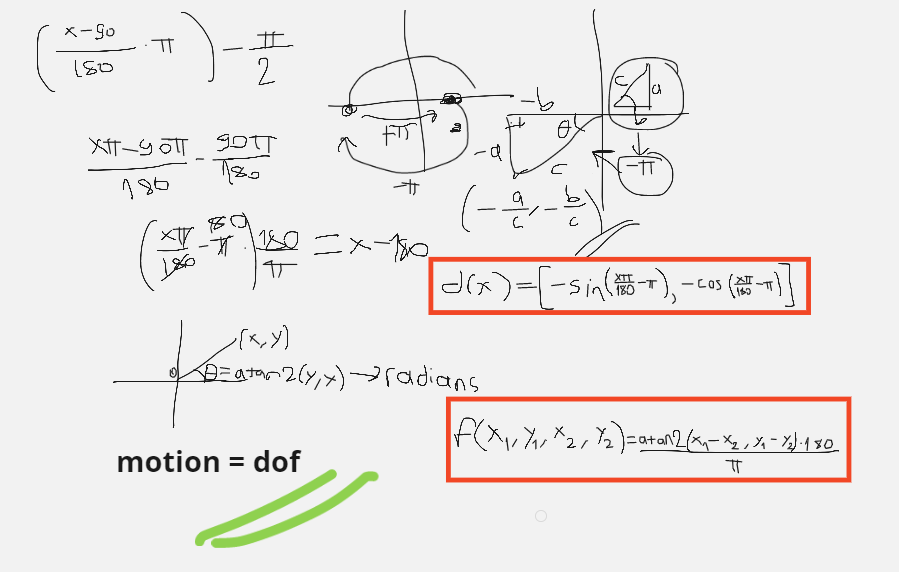 ((x-90)/180 · π) - π/2
(xπ-90π)/180 - 90π/180
(xπ/180 - π) · 180/π = x-180
180
+π
-π
-b
-a
θ
c
(-a/c, -b/c)
c
a
b
-π
d(x)=[-sin(xπ/180-π), -cos(xπ/180-π)]
(x,y)
θ=atan2(y,x)→radians
f(x₁,y₁,x₂,y₂)=atan2(x₁-x₂,y₁-y₂)·180/π
motion = dof